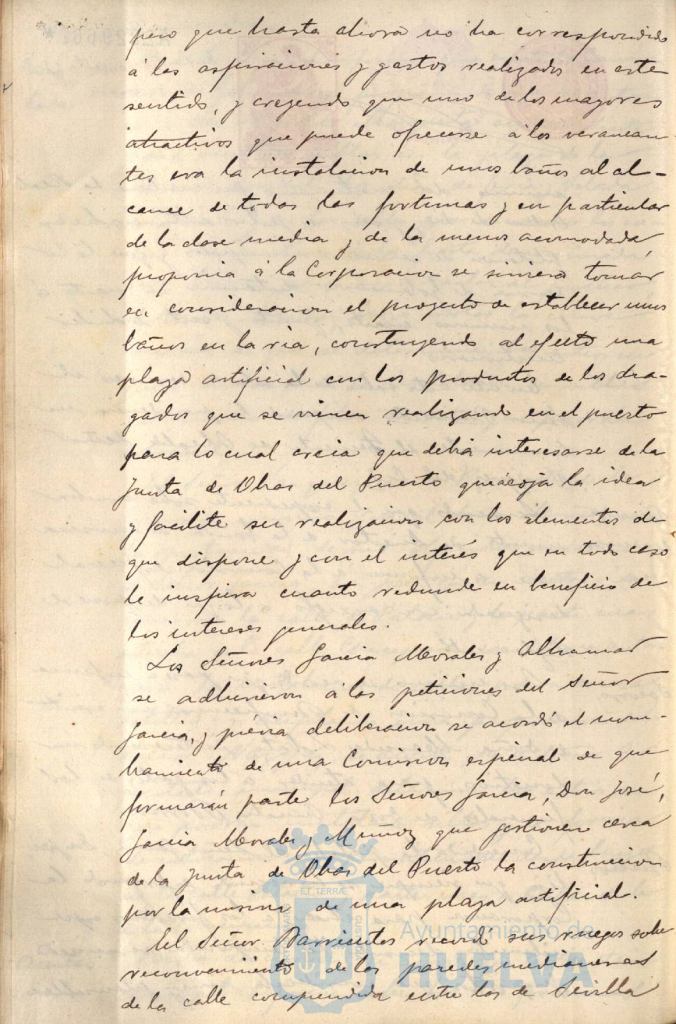 pero que hasta ahora no ha correspondido
á las aspiraciones y gastos realizados en este
sentido, y creyendo que uno de los mayores
atractivos que puede ofrecerse á los veranean-
tes era la instalacion de unos baños al al-
cance de todas las fortunas y en particular
de la clase media y de la menos acomodada,
proponia á la Corporacion se sirviera tomar
en consideracion el proyecto de establecer unos
baños en la ria, construyendo al efecto una
playa artificial con los productos de los dra-
gados que se vienen realizando en el puerto
para lo cual creia que debia interesarse de la
Junta de Obras del Puerto que acoja la idea
y facilite su realizacion con los elementos de
que dispone y con el interés que en todo caso
le inspira cuanto redunde en beneficio de
los intereses generales.
Los Señores Garcia Morales y Alhamar
se adhirieron á las peticiones del Señor
Garcia, y prévia deliberacion se acordó el nom-
bramiento de una Comision especial de que
formarán parte los Señores Garcia, Don José,
Garcia Morales y Muñoz que gestionen cerca
de la Junta de Obras del Puerto la construccion
por la misma de una playa artificial.
El Señor Barrientos recordó sus ruegos sobre
reconocimiento de las paredes medianeras
de la calle comprendida entre las de Sevilla
Ayuntamiento de
HUELVA